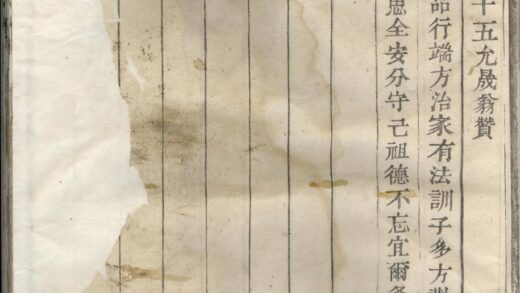 十五允晟翁贊
品行端方治家有法訓子多方
思全安分守己祖德不忘宜爾